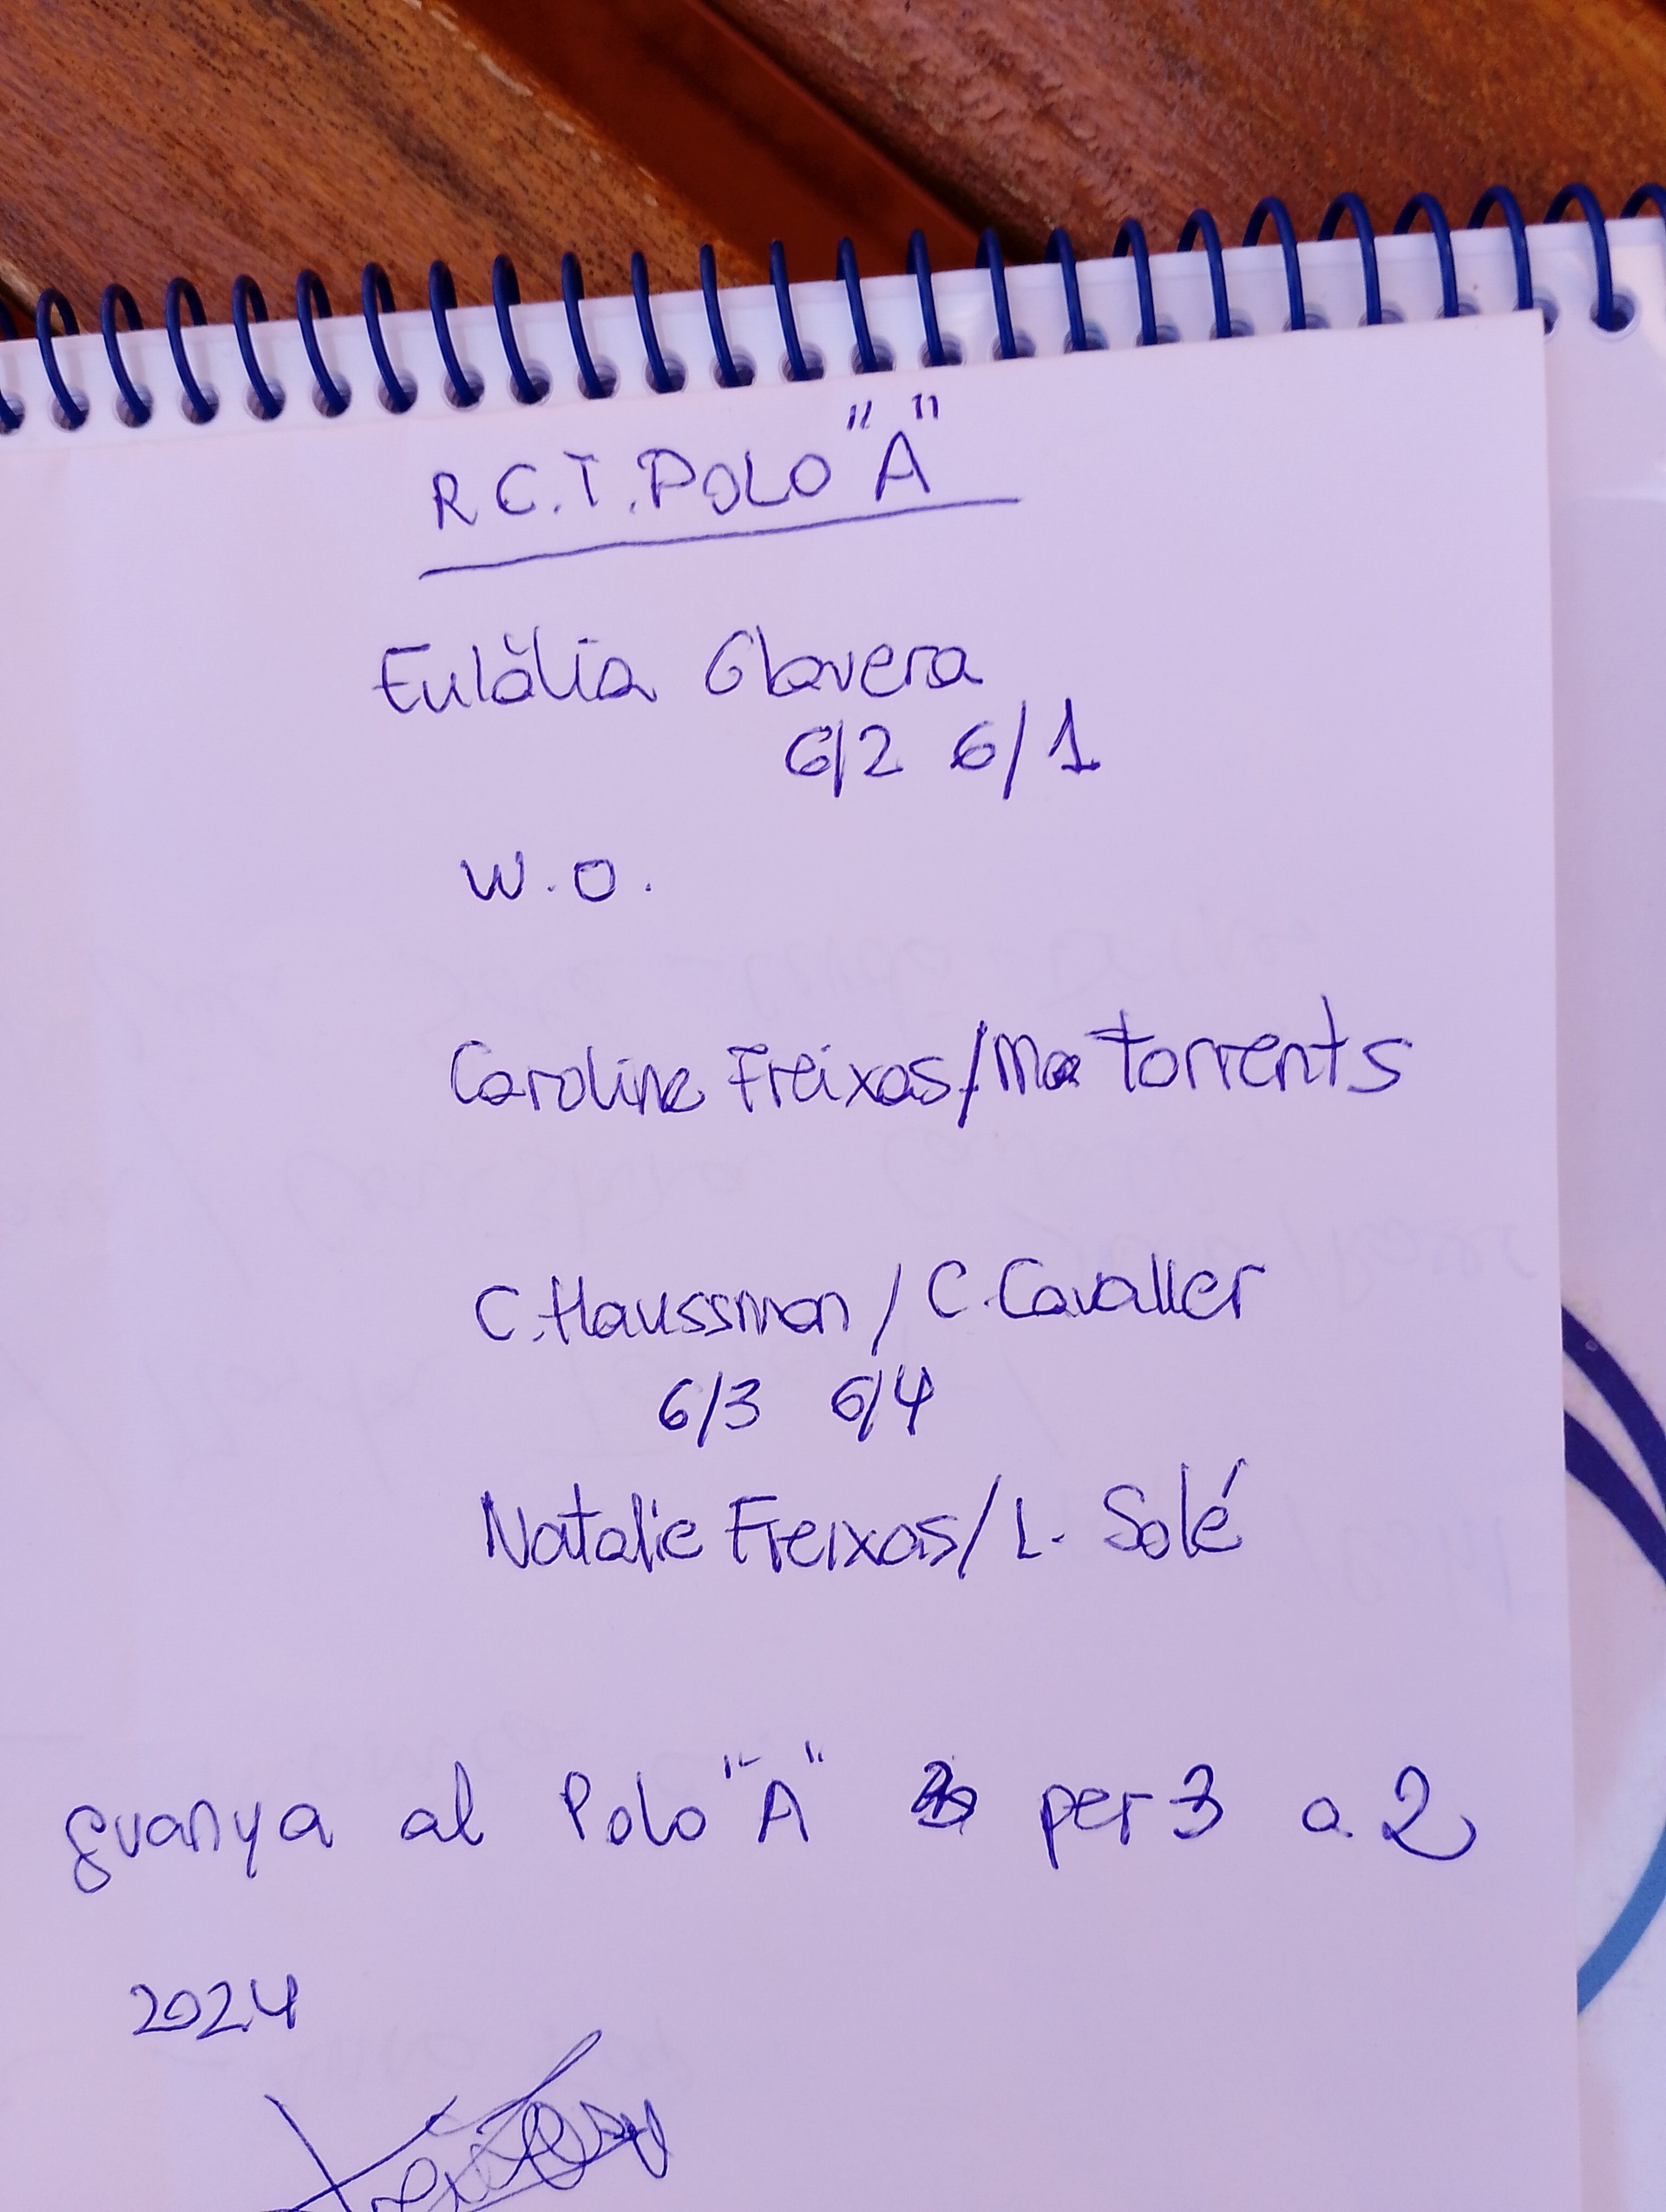 R.C.T. POLO "A"
Eulàlia Glavera
6/2 6/1
W.O.
Caroline Freixas/Ma Torrents
C. Haussman / C. Cavaller
6/3 6/4
Natalie Freixas/L. Solé
guanya al Polo "A" per 3 a 2
2024